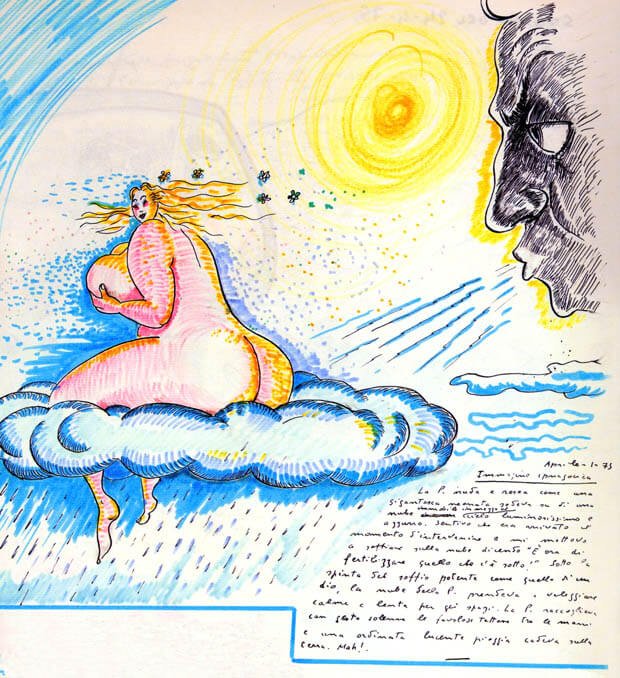 Aprile-1-75
Immagine ipnagogica
La P. nuda e rosea come una
gigantesca neonata godeva su di una
nube immobile in mezzo al
cielo luminosissimo e
azzurro. Sentivo che era arrivato il
momento d'intervenire e mi mettevo
a soffiare sulla nube dicendo "È ora di
fertilizzare quello che c'è sotto!" Sotto la
spinta del soffio potente come quello di un
dio, la nube della P. prendeva a veleggiare
calma e lenta per gli spazi. La P. raccoglieva
con gesto solenne le favolose tettone tra le mani
e una ordinata lucente pioggia cadeva sulla
terra. Mah!